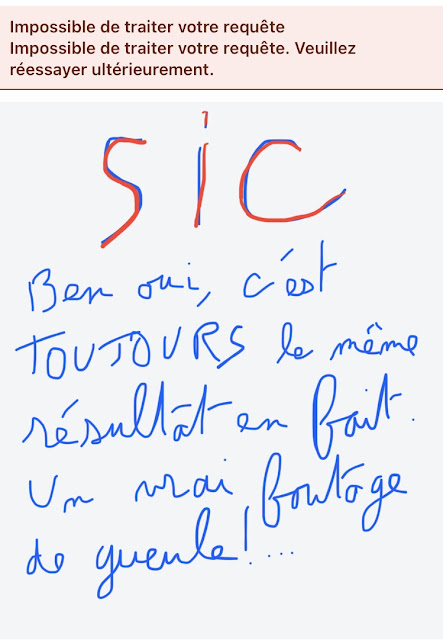 Impossible de traiter votre requête
Impossible de traiter votre requête. Veuillez
réessayer ultérieurement.
sic
Ben oui, c'est
TOUJOURS le même
résultat en fait.
Un vrai foutage
de gueule!...